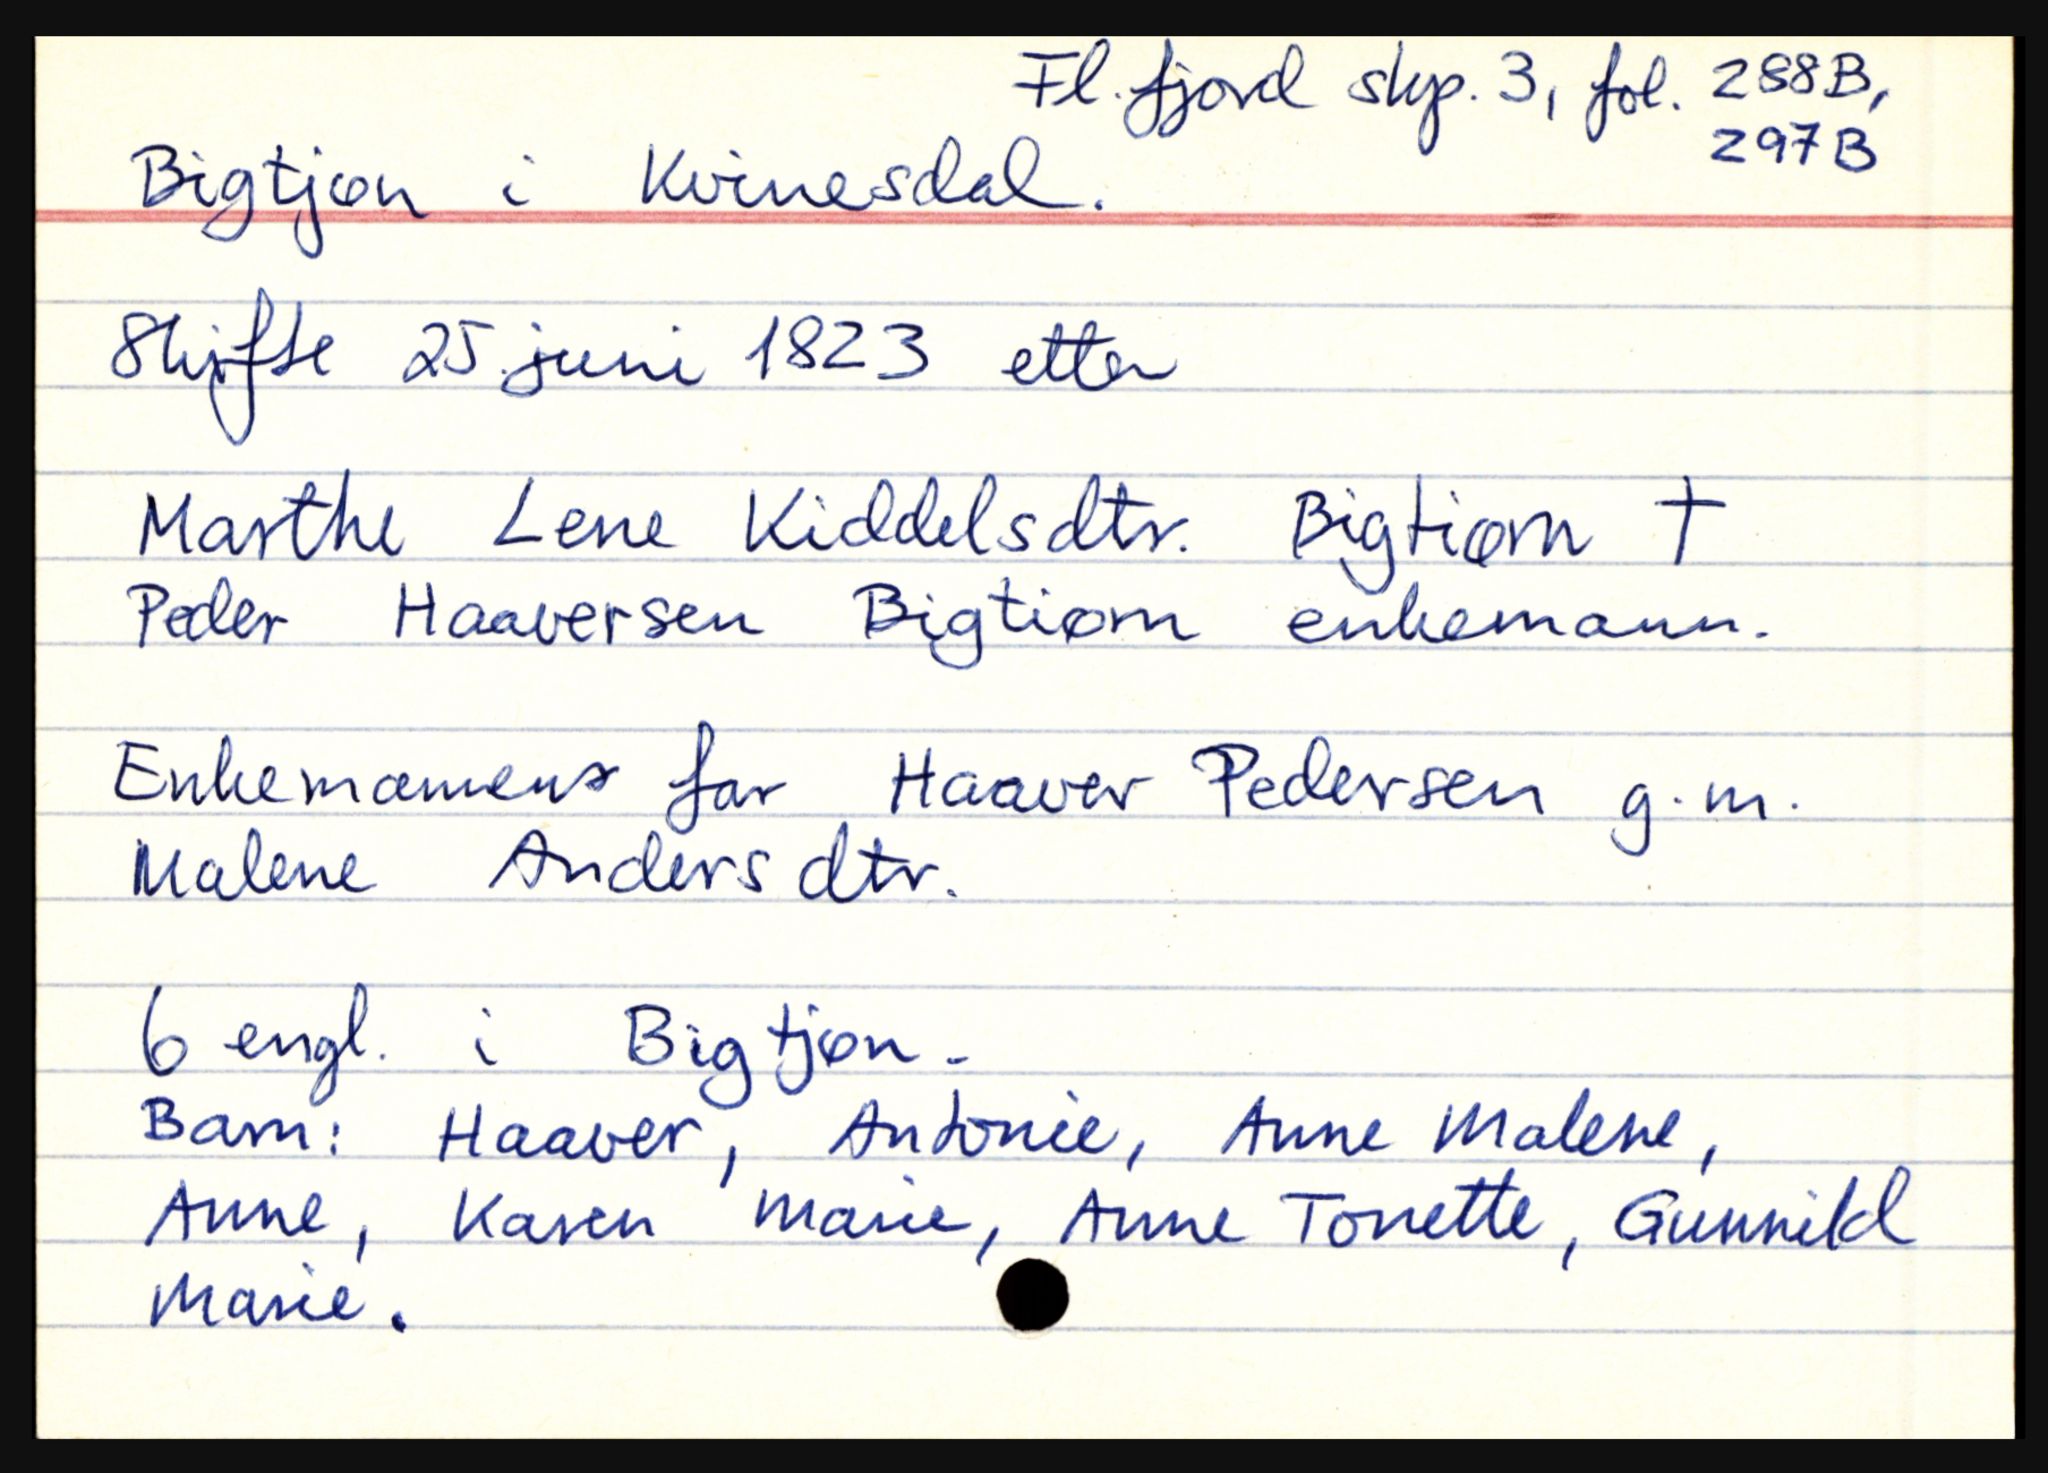 Fl.fjord skp. 3, fol. 288B,
297B
Bigtjøn i Kvinesdal.
Skifte 25. juni 1823 etter
Marthe Lene Kiddelsdtr. Bigtiørn †
Peder Haaversen Bigtiørn enkemann.
Enkemannens far Haaver Pedersen g.m.
Malene Andersdtr.
6 engl. i Bigtjøn.
Barn: Haaver, Antonie, Anne Malene,
Anne, Karen Marie, Anne Tonette, Gunnild
Marie.